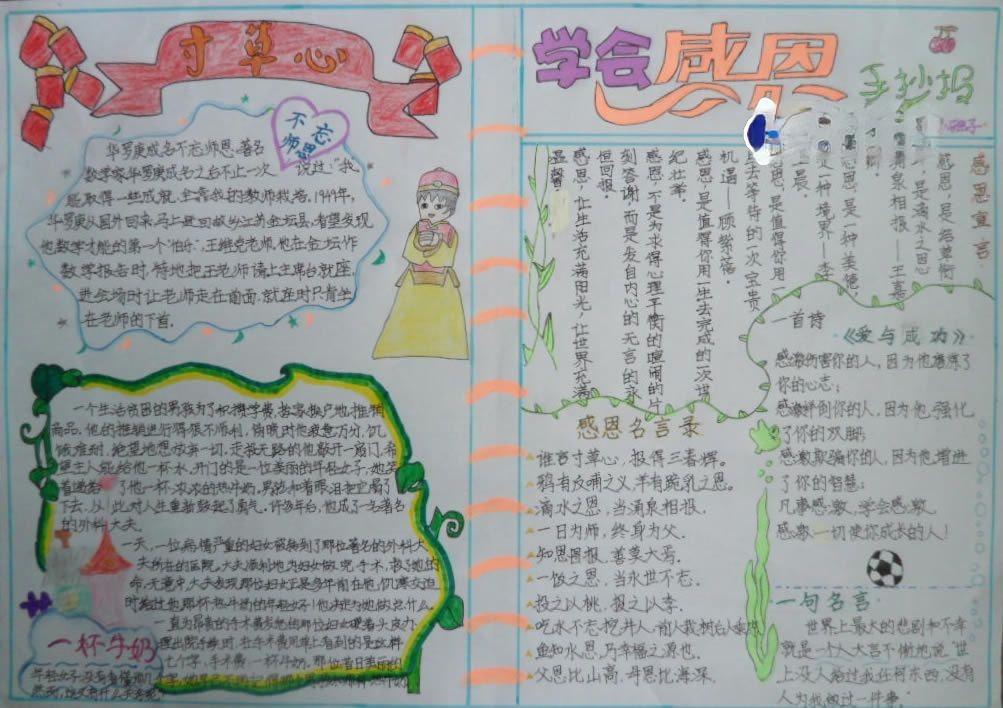 寸草心
不忘
师恩
华罗庚成名不忘师恩,著名
数学家华罗庚成名之后不止一次 说过:"我
能取得一些成就,全靠我的教师栽培。1949年,
华罗庚从国外回来,马上赶回故乡江苏金坛县,看望发现
他数学才能的第一个"伯乐"王维克老师,他在金坛作
数学报告时,特地把王老师请上主席台就座,
进会场时让老师走在前面,就座时只肯坐
在老师的下首。
一个生活贫困的男孩为了积攒学费,挨家挨户地推销
商品。他的推销进行得很不顺利,傍晚时他疲惫万分,饥
饿难耐,绝望地想放弃一切。走投无路的他敲开一扇门,希
望主人能给他一杯水,开门的是一位美丽的年轻女子,她笑
着递给 了他一杯浓浓的热牛奶,男孩和着眼泪把它喝了
下去,从此对人生重新鼓起了勇气。许多年后,他成了一名著名
的外科大夫。
一天,一位病情严重的妇女被转到了那位著名的外科大
夫所在的医院。大夫顺利地为妇女做完手术,救了她的
命。无意中,大夫发现那位妇女正是多年前在他饥寒交迫
时给过他那杯热牛奶的年轻女子!他决定为她做点什么。
一直为昂贵的手术费发愁的那位妇女硬着头皮办
理出院手续时,在手术费用单上看到的是这样
七个字,手术费:一杯牛奶。那位昔日美丽的
一杯牛奶
学会感恩
手抄报
感恩宣言
感恩,是结草衔
,是滴水之恩
涌泉相报。——王嘉
感恩,是一种美德,
是一种境界——李
上晨
感恩,是值得你用一
生去等待的一次宝贵
机遇——顾繁蓓
感恩,是值得你用一生去完成的一次世
纪壮举
感恩,不是为求得心理平衡的喧闹的片
刻答谢,而是发自内心的无言的永
恒回报。
感恩,让生活充满阳光,让世界充满
温馨
一首诗
《爱与成功》
感激伤害你的人,因为他磨炼了
你的心志;
感激绊倒你的人,因为他强化
了你的双脚;
感激欺骗你的人,因为他增进
了你的智慧;
凡事感激,学会感激
感激一切使你成长的人!
感恩名言录
谁言寸草心,报得三春辉。
鸦有反哺之义,羊有跪乳之恩。
滴水之恩,当涌泉相报。
一日为师,终身为父。
知恩图报,善莫大焉。
一饭之恩,当永世不忘。
投之以桃,报之以李。
吃水不忘挖井人,前人栽树后人乘凉
鱼知水恩,乃幸福之源也。
父恩比山高,母恩比海深。
一句名言
世界上最大的悲剧和不幸
就是一个人大言不惭地说"世
上没人给过我任何东西,没有
人为我做过一件事"